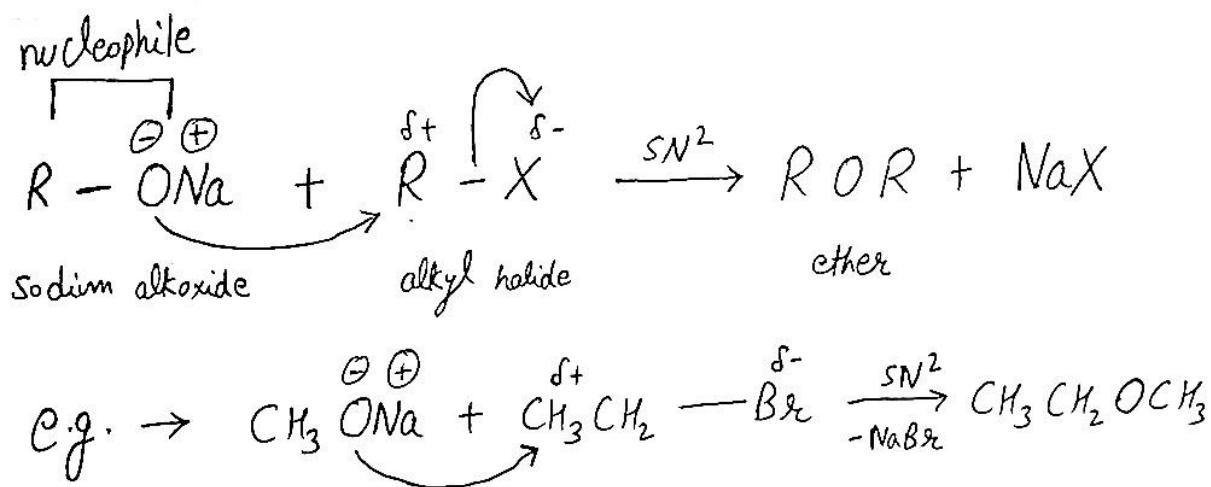 nucleophile
⊖ ⊕ δ+ δ-
R - ONa + R - X SN² → R O R + NaX
sodium alkoxide alkyl halide ether
⊖ ⊕ δ+ δ-
e.g. → CH₃ ONa + CH₃CH₂ — Br SN² → CH₃ CH₂ OCH₃
-NaBr